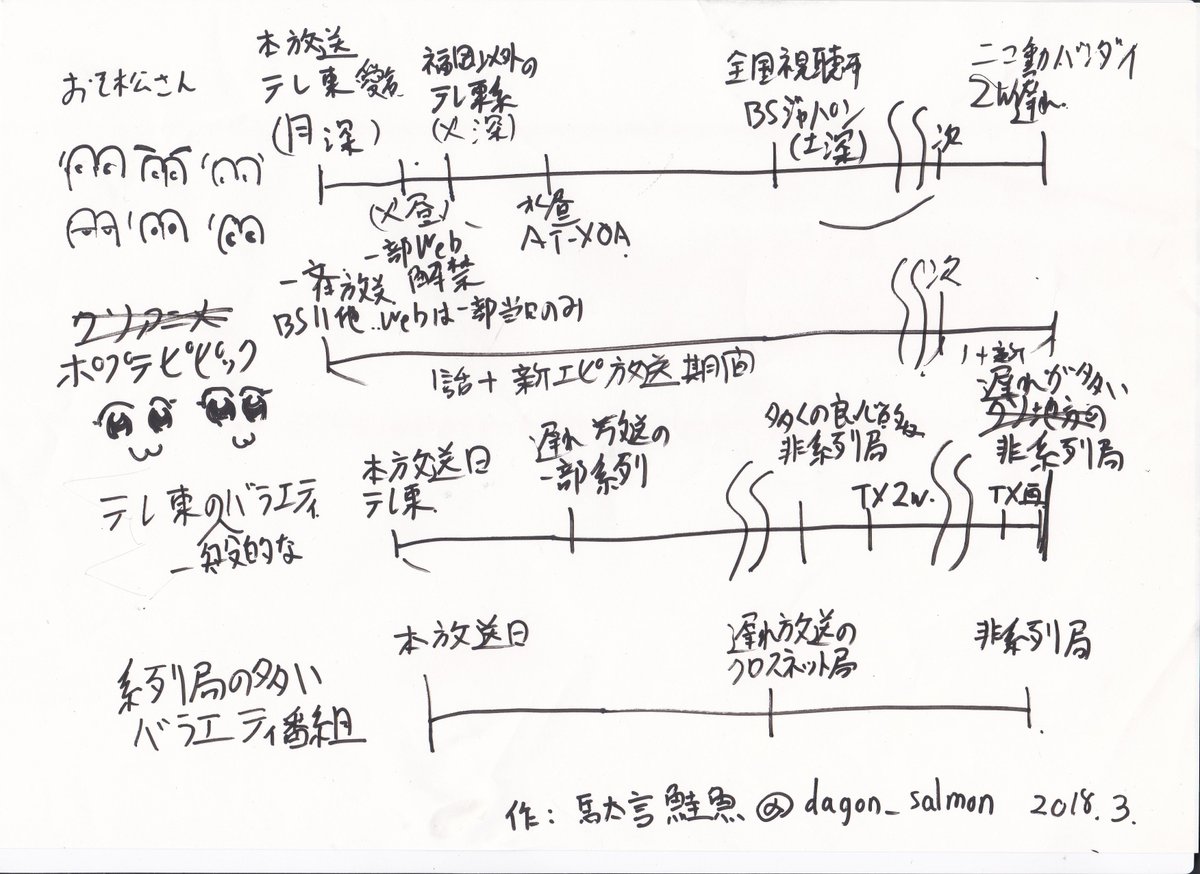 おそ松さん
本放送
テレ東 愛知
(月深)
福岡以外の
テレ東系
(火深)
全国視聴可
BSジャパン
(土深)
ニコ動バンダイ
2w遅れ
次
(火昼)
一部Web
解禁
水昼
AT-X OA
クソアニメ
ポプテピピック
一斉放送
BS11他 Webは一部当日のみ
次
1話+新エピ放送期間
1+新
テレ東のバラエティ
一般的な
本放送日
テレ東
遅れ放送の
一部系列
多くの良心的な
非系列局
TX2w.
遅れが多い
クソ地方の
非系列局
系列局の多い
バラエティ番組
本放送日
遅れ放送の
クロスネット局
非系列局
作: 駄言鮭魚 @dagon_salmon 2018.3.